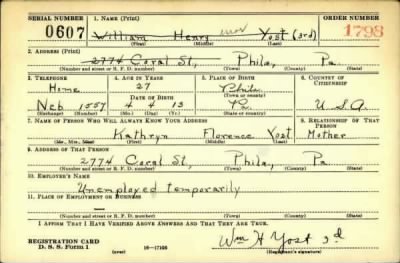 SERIAL NUMBER 1. NAME (Print) ORDER NUMBER
0607 William Henry Yost (3rd) 1798
(First) (Middle) (Last)
2. ADDRESS (Print)
2774 Coral St, Phila, Pa
(Number and street or R. F. D. number) (Town) (County) (State)
3. TELEPHONE 4. AGE IN YEARS 5. PLACE OF BIRTH 6. COUNTRY OF CITIZENSHIP
Home 27 Phila
DATE OF BIRTH (Town or county)
Neb 1557 4 4 13 Pa. U.S.A.
(Exchange) (Number) (Mo.) (Day) (Yr.) (State or country)
7. NAME OF PERSON WHO WILL ALWAYS KNOW YOUR ADDRESS 8. RELATIONSHIP OF THAT PERSON
Kathryn Florence Yost Mother
(Mr., Mrs., Miss) (First) (Middle) (Last)
9. ADDRESS OF THAT PERSON
2774 Coral St, Phila, Pa
(Number and street or R. F. D. number) (Town) (County) (State)
10. EMPLOYER'S NAME
Unemployed temporarily
11. PLACE OF EMPLOYMENT OR BUSINESS
(Number and street or R. F. D. number) (Town) (County) (State)
I AFFIRM THAT I HAVE VERIFIED ABOVE ANSWERS AND THAT THEY ARE TRUE.
REGISTRATION CARD Wm H Yost 3d
D. S. S. Form 1 (over) 16—17105 (Registrant's signature)